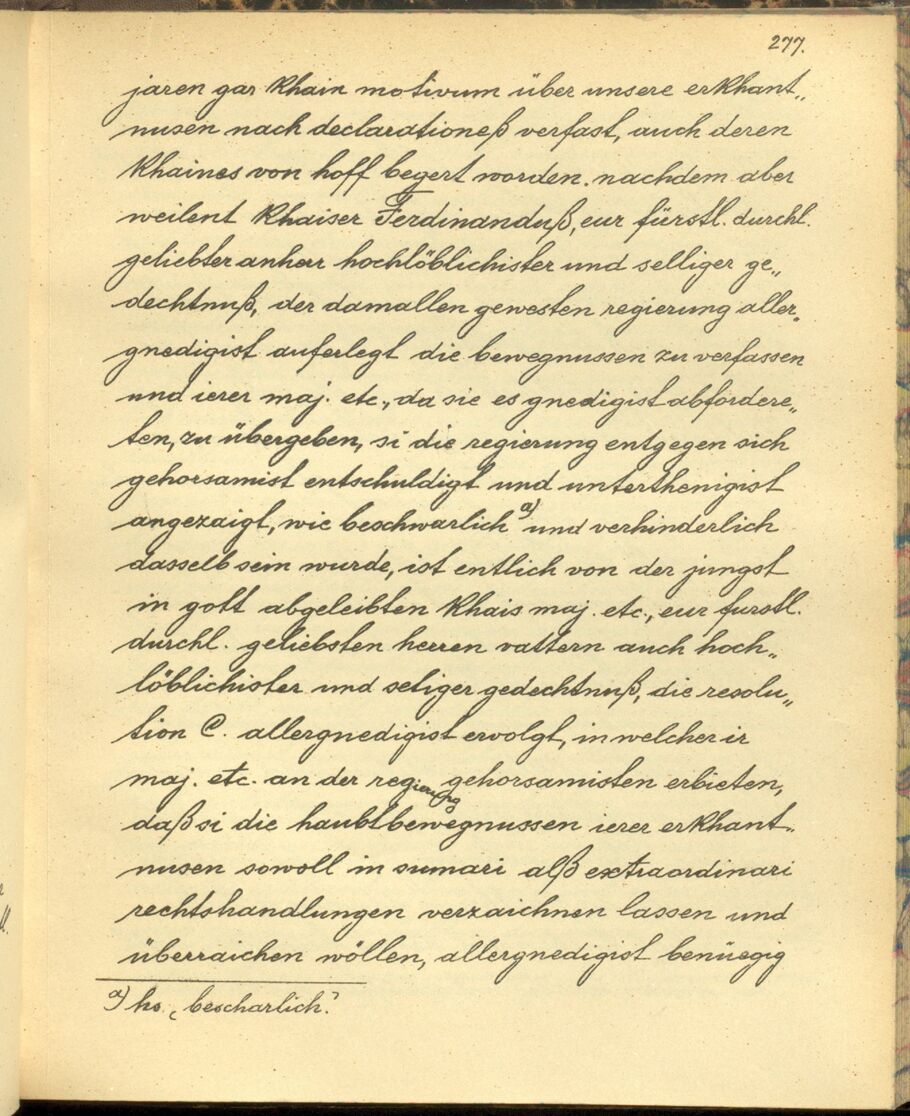 277.
jaren gar khain motivum über unsere erkhant„
nusen nach declarationeß verfast, auch deren
khaines von hoff begert worden. nachdem aber
weilent khaiser Ferdinanduß, eur fürstl. durchl.
geliebter anherr hochlöblichister und selliger ge„
dechtnuß, der damallen gewesten regierung aller„
gnedigist auferlegt die bewegnussen zu verfassen
und ierer maj. etc., da sie es gnedigist abfordere„
ten, zu übergeben, si die regierung entgegen sich
gehorsamist entschuldigt und unterthenigist
angezaigt, wie beschwarlich a) und verhinderlich
dasselb sein wurde, ist entlich von der jungst
in gott abgeleibten khais maj. etc., eur furstl.
durchl. geliebsten herren vattern auch hoch„
löblichister und seliger gedechtnuß, die resolu„
tion C. allergnedigist ervolgt, in welcher ir
maj. etc. an der regierung gehorsamisten erbieten,
daß si die haubtbewegnussen ierer erkhant„
nusen sowoll in sumari alß extraordinari
rechtshandlungen verzaichnen lassen und
überraichen wöllen, allergnedigist benüegig
a) hs. „bescharlich."